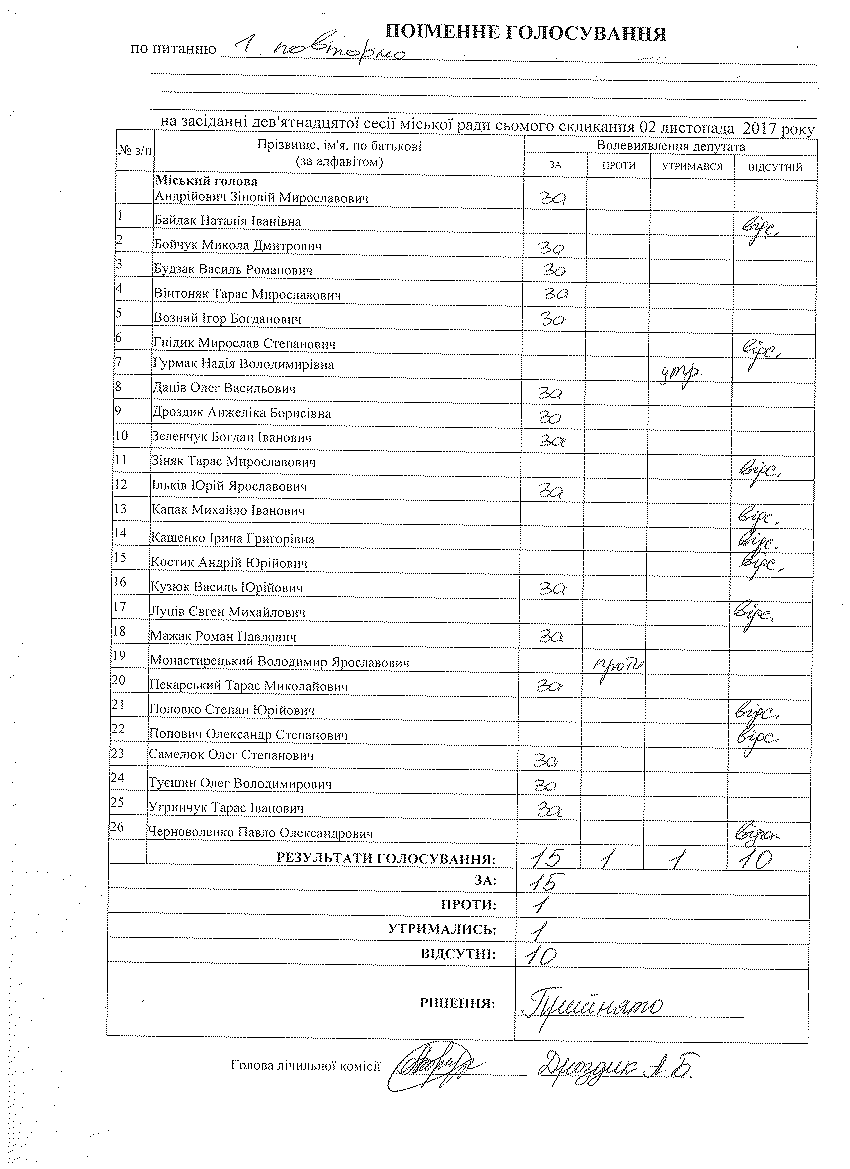 ПОІМЕННЕ ГОЛОСУВАННЯ
по питанню 1 повторно
на засіданні дев'ятнадцятої сесії міської ради сьомого скликання 02 листопада 2017 року
№ з/п Прізвище, ім'я, по батькові (за алфавітом) Волевиявлення депутата
ЗА ПРОТИ УТРИМАВСЯ ВІДСУТНІЙ
Міський голова
Андрійович Зіновій Мирославович за
1 Байдак Наталія Іванівна відс.
2 Бойчук Микола Дмитрович за
3 Будзак Василь Романович за
4 Вінтоняк Тарас Мирославович за
5 Возний Ігор Богданович за
6 Гнідик Мирослав Степанович відс.
7 Гурмак Надія Володимирівна утр.
8 Даців Олег Васильович за
9 Дроздик Анжеліка Борисівна за
10 Зеленчук Богдан Іванович за
11 Зіняк Тарас Мирославович відс.
12 Ільків Юрій Ярославович за
13 Капак Михайло Іванович відс.
14 Кащенко Ірина Григорівна відс.
15 Костик Андрій Юрійович відс.
16 Кузюк Василь Юрійович за
17 Луців Євген Михайлович відс.
18 Мажак Роман Павлович за
19 Монастирецький Володимир Ярославович проти
20 Пекарський Тарас Миколайович за
21 Половко Степан Юрійович відс.
22 Попович Олександр Степанович відс.
23 Самелюк Олег Степанович за
24 Туєшин Олег Володимирович за
25 Угринчук Тарас Іванович за
26 Черноволенко Павло Олександрович
РЕЗУЛЬТАТИ ГОЛОСУВАННЯ: 15 1 1 10
ЗА: 15
ПРОТИ: 1
УТРИМАЛИСЬ: 1
ВІДСУТНІ: 10
РІШЕННЯ: Прийнято
Голова лічильної комісії Дроздик А.Б.